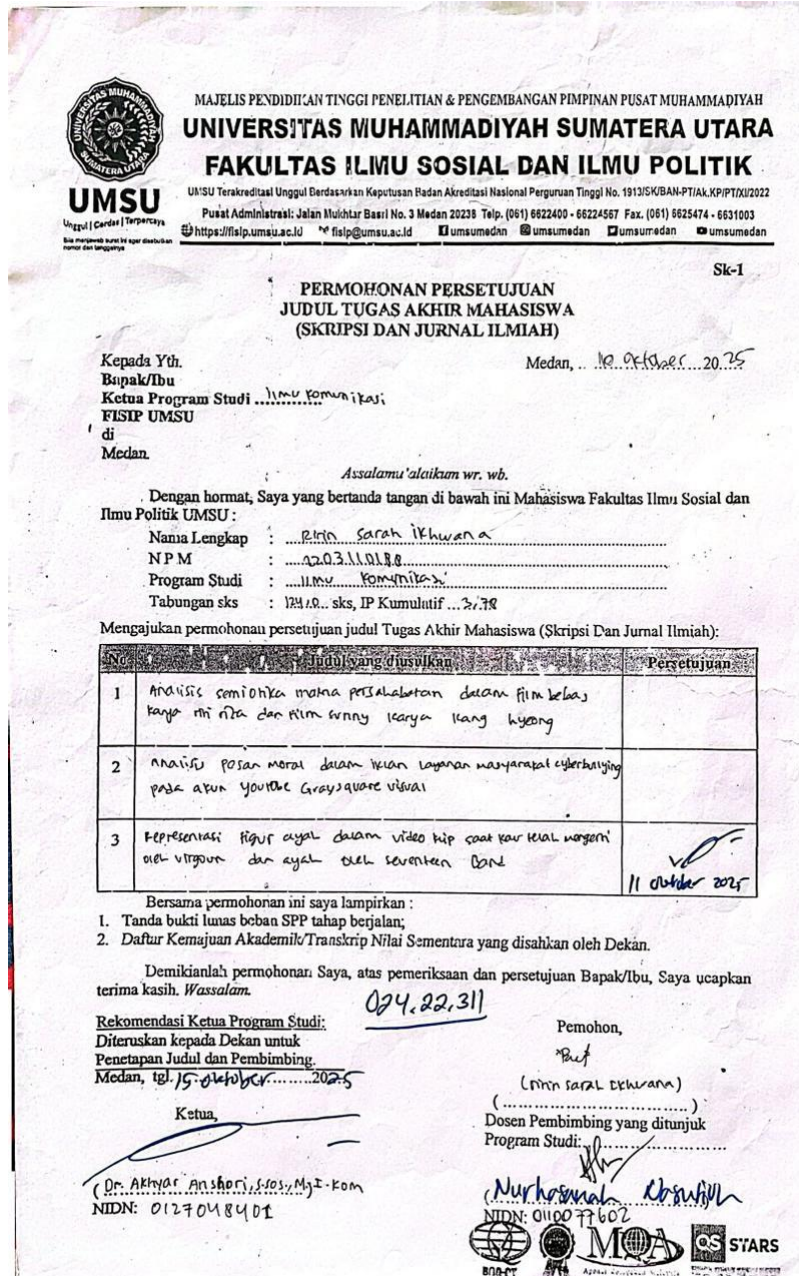 MAJELIS PENDIDIKAN TINGGI PENELITIAN & PENGEMBANGAN PIMPINAN PUSAT MUHAMMADIYAH
UNIVERSITAS MUHAMMADIYAH SUMATERA UTARA
FAKULTAS ILMU SOSIAL DAN ILMU POLITIK
UMSU
Unggul | Cerdas | Terpercaya
Bila menjawab surat ini agar disebutkan
nomor dan tanggalnya
UMSU Terakreditasi Unggul Berdasarkan Keputusan Badan Akreditasi Nasional Perguruan Tinggi No. 1913/SK/BAN-PT/Ak.KP/PT/XI/2022
Pusat Administrasi: Jalan Mukhtar Basri No. 3 Medan 20238 Telp. (061) 6622400 - 66224567 Fax. (061) 6625474 - 6631003
https://fisip.umsu.ac.id fisip@umsu.ac.id umsumedan umsumedan umsumedan umsumedan
Sk-1
PERMOHONAN PERSETUJUAN
JUDUL TUGAS AKHIR MAHASISWA
(SKRIPSI DAN JURNAL ILMIAH)
Kepada Yth. Medan, .. 10 Oktober 2025
Bapak/Ibu
Ketua Program Studi Ilmu Komunikasi
FISIP UMSU
di
Medan.
Assalamu'alaikum wr. wb.
Dengan hormat, Saya yang bertanda tangan di bawah ini Mahasiswa Fakultas Ilmu Sosial dan
Ilmu Politik UMSU :
Nama Lengkap : Ririn Sarah Ikhwana
N P M : 2203110188
Program Studi : Ilmu Komunikasi
Tabungan sks : 124.0 sks, IP Kumulatif 3,78
Mengajukan permohonan persetujuan judul Tugas Akhir Mahasiswa (Skripsi Dan Jurnal Ilmiah):
No Judul yang diusulkan Persetujuan
1 Analisis semiotika makna persahabatan dalam film bebas
karya riri riza dan film sunny karya kang hyeong
2 Analisis pesan moral dalam iklan layanan masyarakat cyberbullying
pada akun youtube Graysquare visual
3 Representasi figur ayah dalam video klip saat kau telah mengerti
oleh virgoun dan ayah oleh seventeen Band
11 oktober 2025
Bersama permohonan ini saya lampirkan :
1. Tanda bukti lunas beban SPP tahap berjalan;
2. Daftar Kemajuan Akademik/Transkrip Nilai Sementara yang disahkan oleh Dekan.
Demikianlah permohonan Saya, atas pemeriksaan dan persetujuan Bapak/Ibu, Saya ucapkan
terima kasih. Wassalam.
024.22.311
Rekomendasi Ketua Program Studi:
Diteruskan kepada Dekan untuk
Penetapan Judul dan Pembimbing.
Medan, tgl. 15 oktober 2025
Ketua,
(Dr. Akhyar Anshori, S.sos., M.I.Kom
NIDN: 0127048401
Pemohon,
(ririn sarah Ikhwana)
(..................................)
Dosen Pembimbing yang ditunjuk
Program Studi:
(Nurhasanah Nasution
NIDN: 0110077602
BAN-PT
MQA
QS STARS